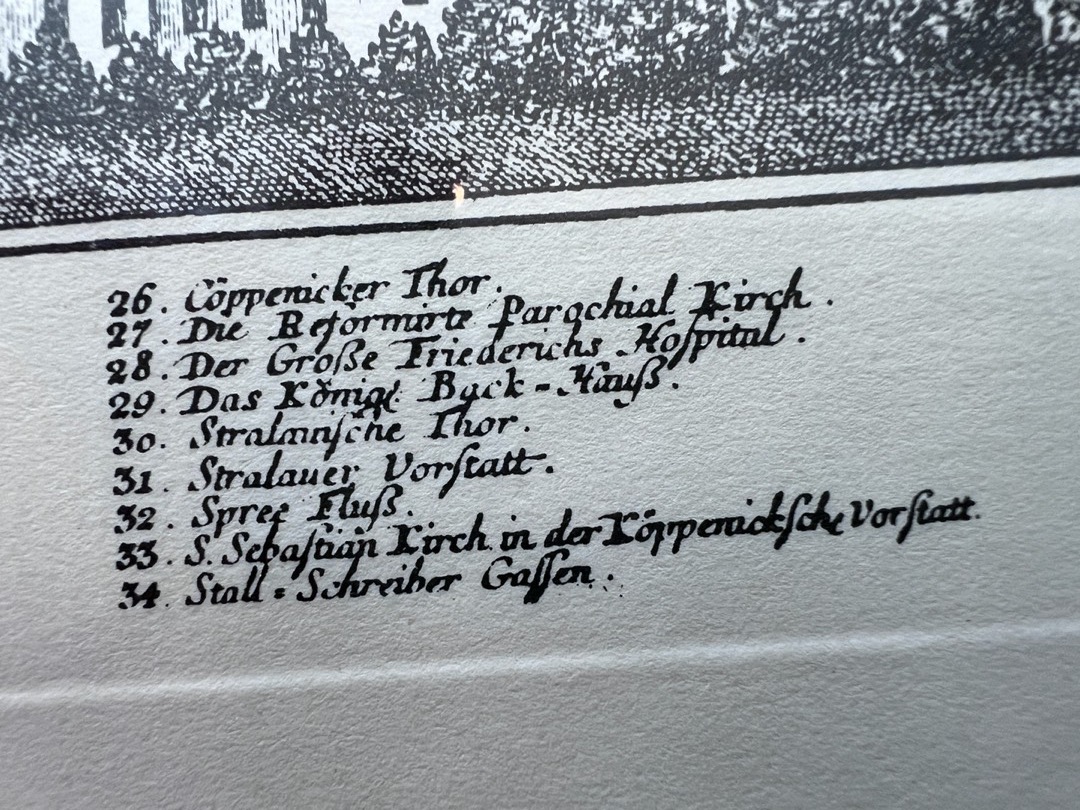 26. Cöppenicker Thor.
27. Die Reformirte Parochial Kirch.
28. Der Große Friederichs Hoſpital.
29. Das Königl Back-Hauß.
30. Stralauiſche Thor.
31. Stralauer Vorſtatt.
32. Spree Fluß.
33. S. Sebaſtian Kirch in der Köppenickſche Vorſtatt.
34. Stall=Schreiber Gaſſen.